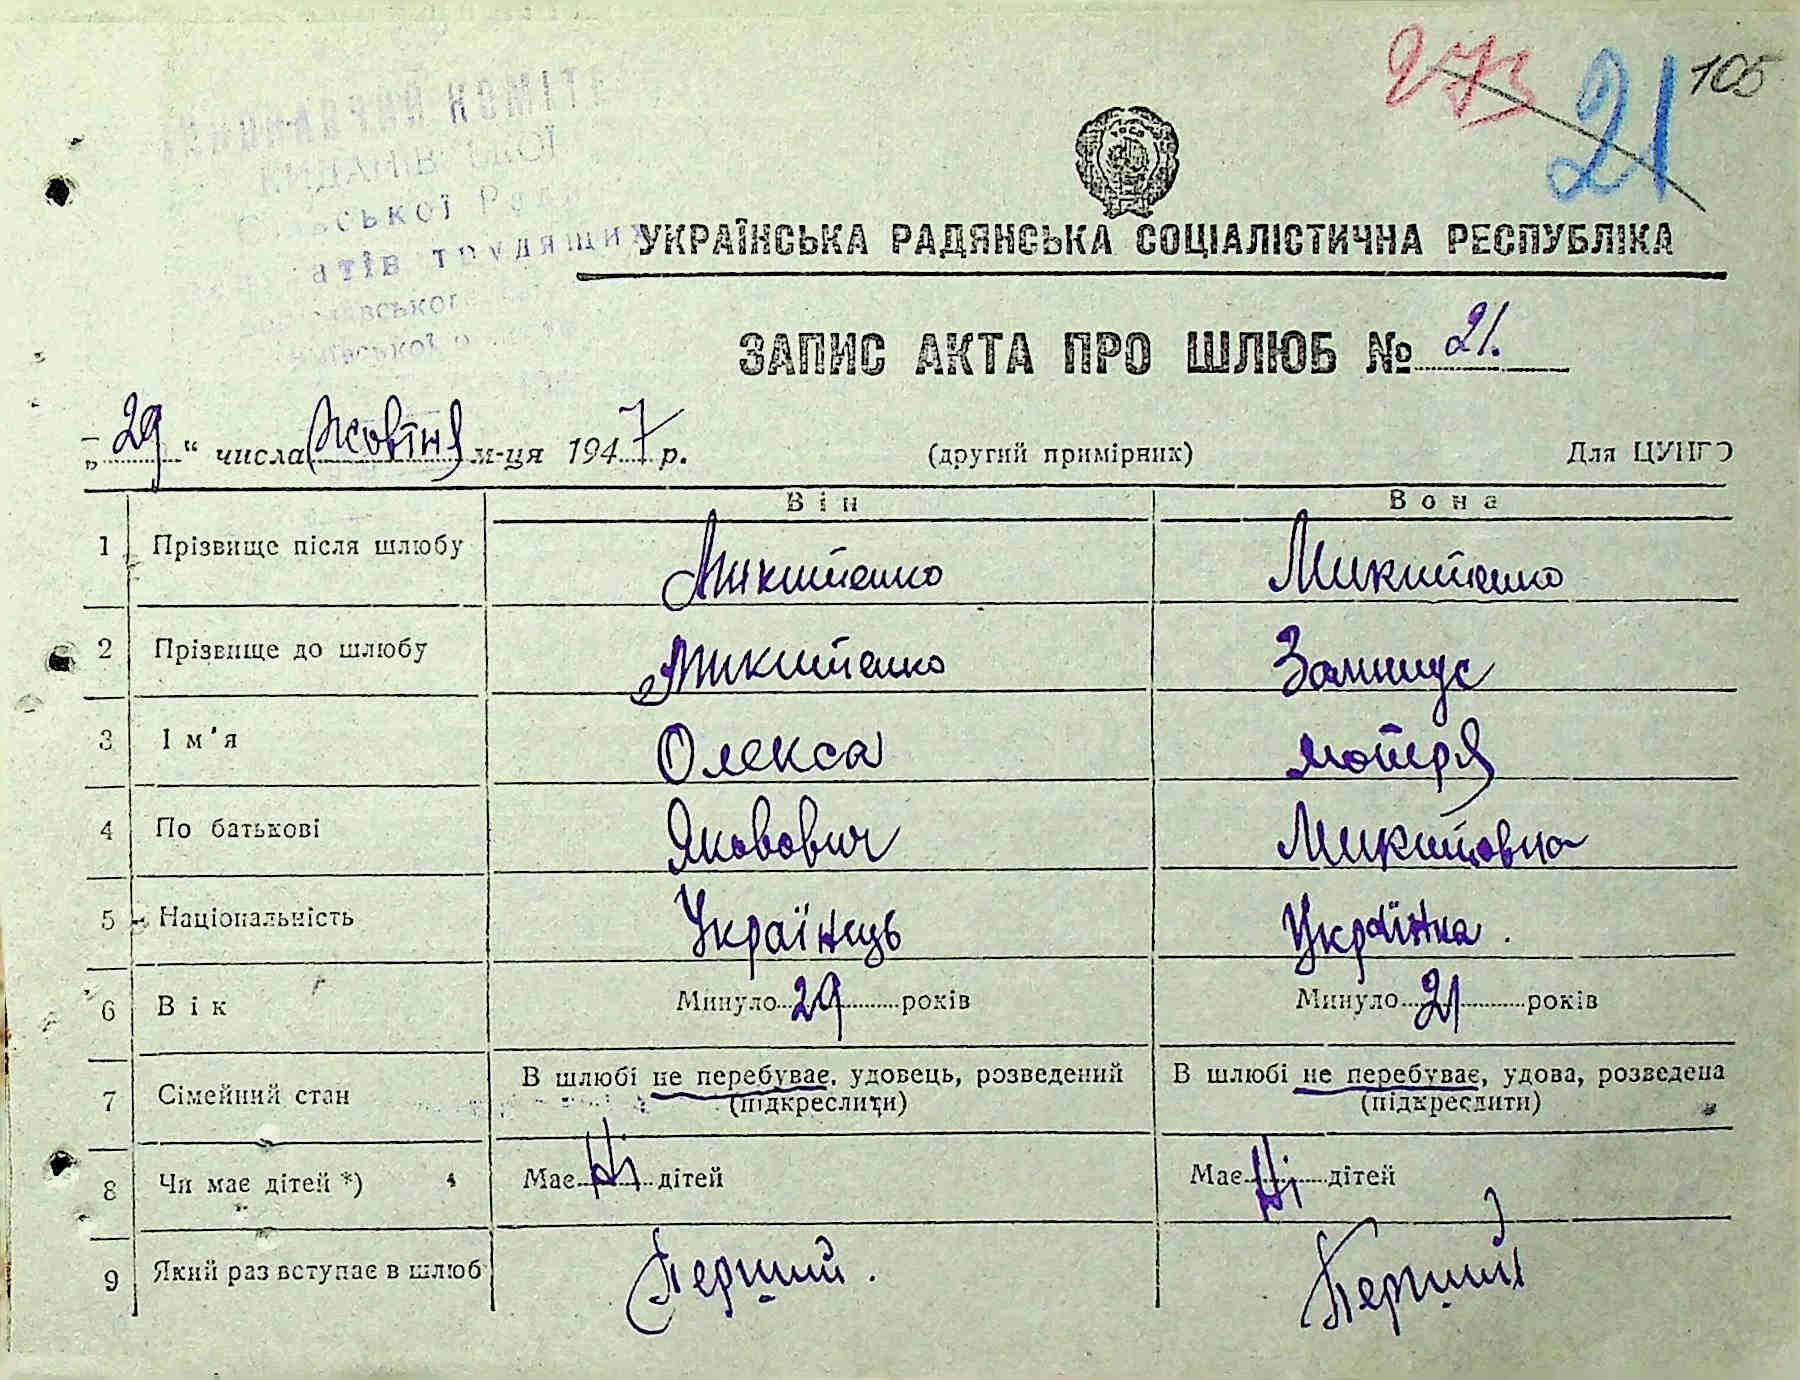 273 21 105
УКРАЇНСЬКА РАДЯНСЬКА СОЦІАЛІСТИЧНА РЕСПУБЛІКА
ЗАПИС АКТА ПРО ШЛЮБ № 21.
„29“ числа Жовтня м-ця 1947 р. (другий примірник) Для ЦУНГО
Він Вона
1 Прізвище після шлюбу Микитенко Микитенко
2 Прізвище до шлюбу Микитенко
3 Ім'я Олекса Мотря
4 По батькові Якович Микитовна
5 Національність Українець Українка.
6 Вік Минуло 29 років Минуло 21 років
7 Сімейний стан В шлюбі не перебуває, удовець, розведений В шлюбі не перебуває, удова, розведена
(підкреслити) (підкреслити)
8 Чи має дітей *) Має Ні дітей Має Ні дітей
9 Який раз вступає в шлюб Перший. Перший